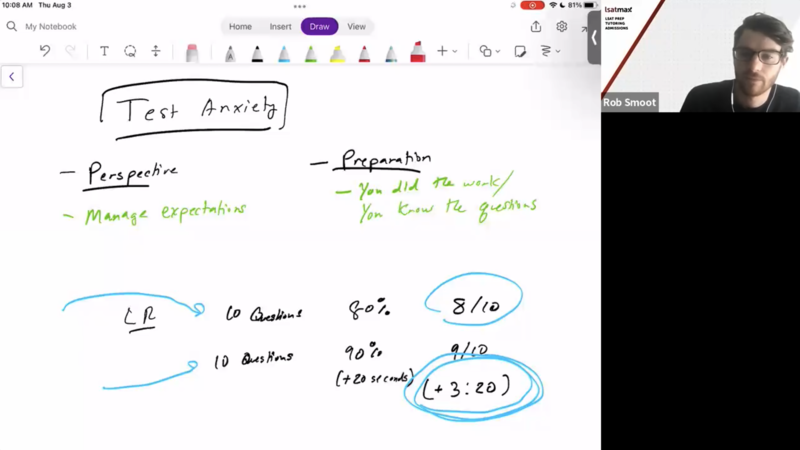 10:08 AM Thu Aug 3
81%
My Notebook
Home Insert Draw View
lsatmax
LSAT PREP
TUTORING
ADMISSIONS
Rob Smoot
Test Anxiety
- Perspective
- Manage expectations
- Preparation
- You did the work/
You know the questions
LR 10 Questions 80% 8/10
10 Questions 90% 9/10
(+20 seconds) (+3:20)